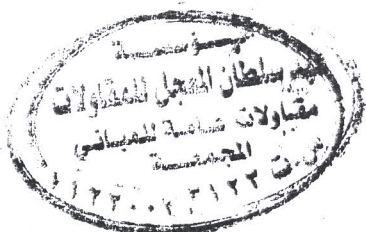 مؤسسة
سلطان المعجل للمقاولات
مقاولات عامة للمباني
المجمعة
س.ت ١١٢٢٠٠٢٣١٢٢